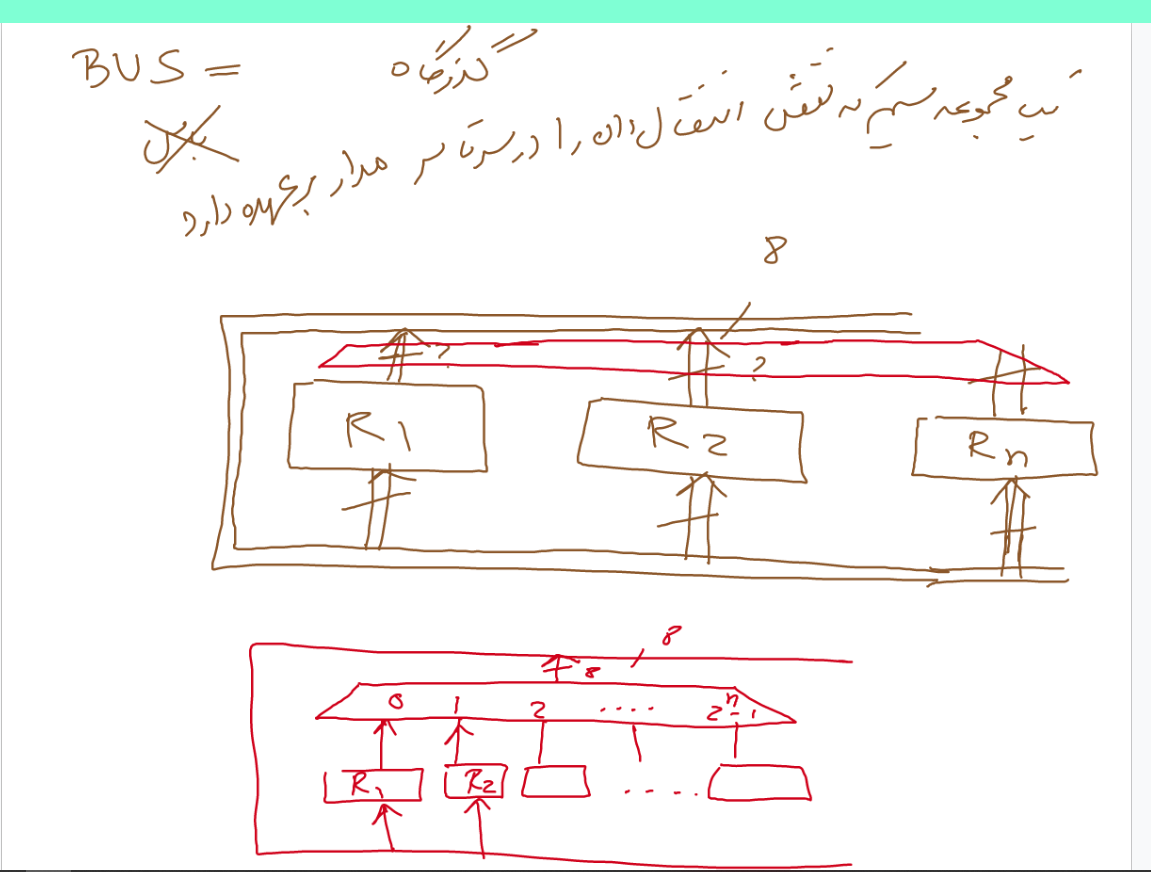 BUS = گذرگاه
باس
یک مجموعه سیم که نقش انتقال داده را در سرتاسر مدار بر عهده دارد
8
? ?
R1 R2 Rn
8
8
0 1 2 .... 2^n-1
R1 R2 .....